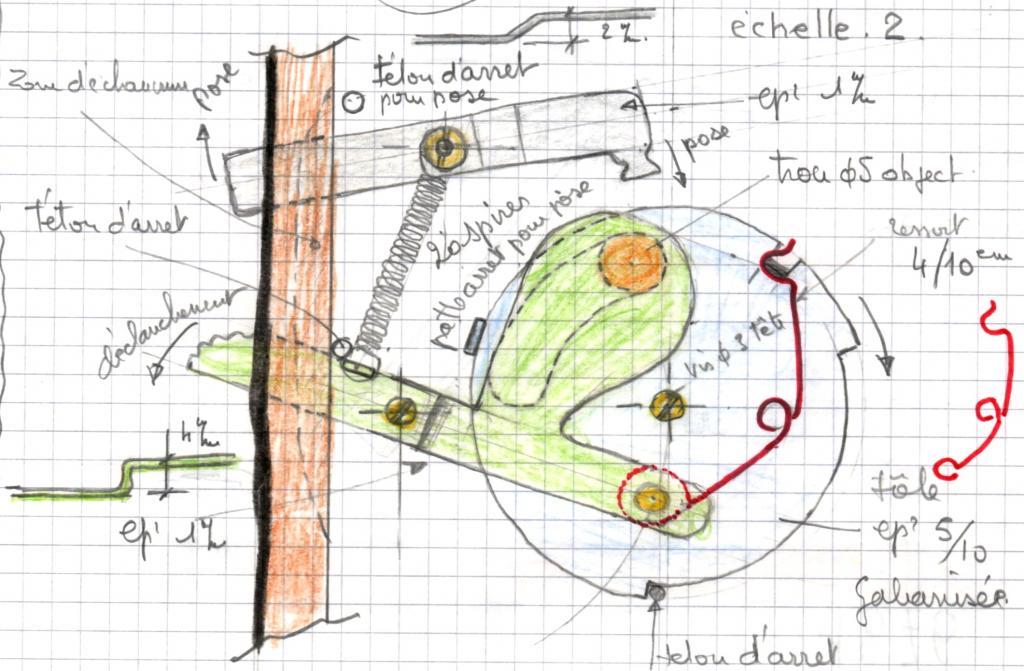 2 m/m
échelle . 2 .
Zone déchancrure
pose
Téton d'arret
pour pose
epr 1 m/m
pose
trou ϕ5 object
Téton d'arret
20 spires
patte arret pour pose
ressort
4/10 em
déclanchement
vis ϕ 3 tête
4 m/m
epr 1 m/m
tôle
epr 5/10
Galvanisée
teton d'arret